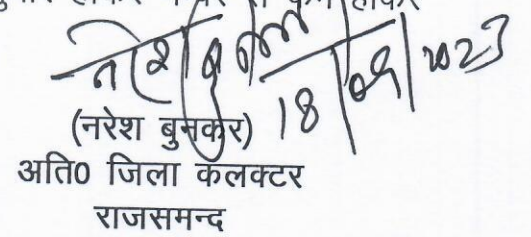 नरेश बुनकर
18/09/2023
(नरेश बुनकर)
अति0 जिला कलक्टर
राजसमन्द